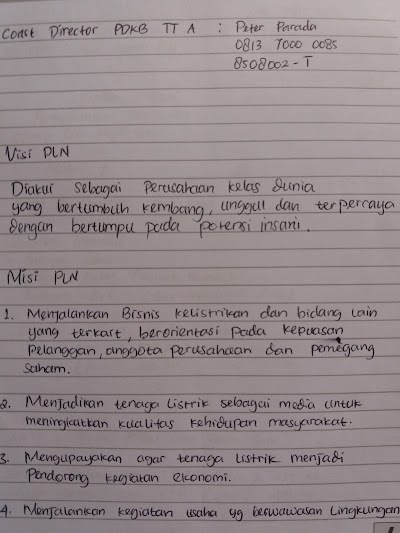 Coast Director PDKB TT A : Peter Parada
0813 7000 0085
8508002 - T
Visi PLN
Diakui Sebagai Perusahaan kelas dunia
yang bertumbuh kembang, unggul dan terpercaya
dengan bertumpu pada potensi insani.
Misi PLN
1. Menjalankan Bisnis kelistrikan dan bidang lain
yang terkait, berorientasi pada kepuasan
Pelanggan, anggota perusahaan dan pemegang
saham.
2. Menjadikan tenaga listrik sebagai media untuk
meningkatkan kualitas kehidupan masyarakat.
3. Mengupayakan agar tenaga listrik menjadi
Pendorong kegiatan ekonomi.
4. Menjalankan kegiatan usaha yg berwawasan Lingkungan